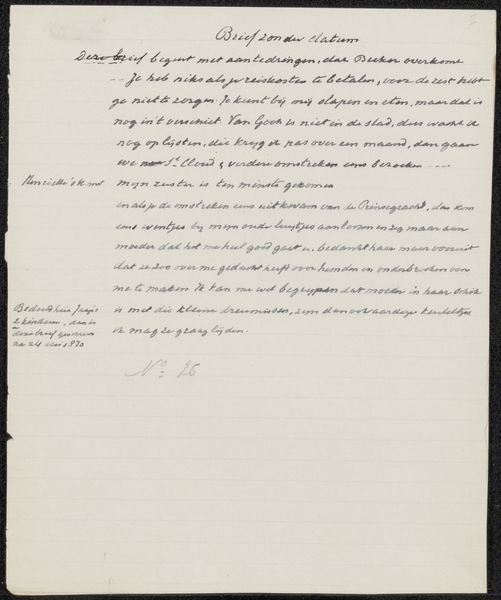 I
Brief zonder datum
Deze brief begint met aantedringen, dat Becker overkome
-- Je heb niks als je reiskosten te betalen, voor de rest hebt
ge niet te zorgen. Je kunt bij mij slapen en eten, maar dat is
nog in't verschiet. Van Gogh is niet in de stad, dus wacht ik
nog op lijsten, die krijg ik pas over een maand, dan gaan
we St Cloud & verdere omstreken eens bezoeken ----
Henriëtte's komst
mijn zuster is ten minste gekomen
en als je de omstreken eens uitkwam van de Prinsegracht, dan kom
eens eventjes bij mijn oude luitjes aanloopen en zeg maar aan
moeder dat het me heel goed gaat en bedankt haar maar vooruit
dat ze zoo over me gedacht heeft over hemden en onderbroeken voor
me te maken. Ik kan me wel begrijpen dat moeder in haar schik
is met die kleine dreumissen, zijn aardige kereltjes
ik mag ze graag lijden.
Bedoeld hier Jaap's
2 kinderen, dan is
deze brief geschreven
na 24 1870
No 26